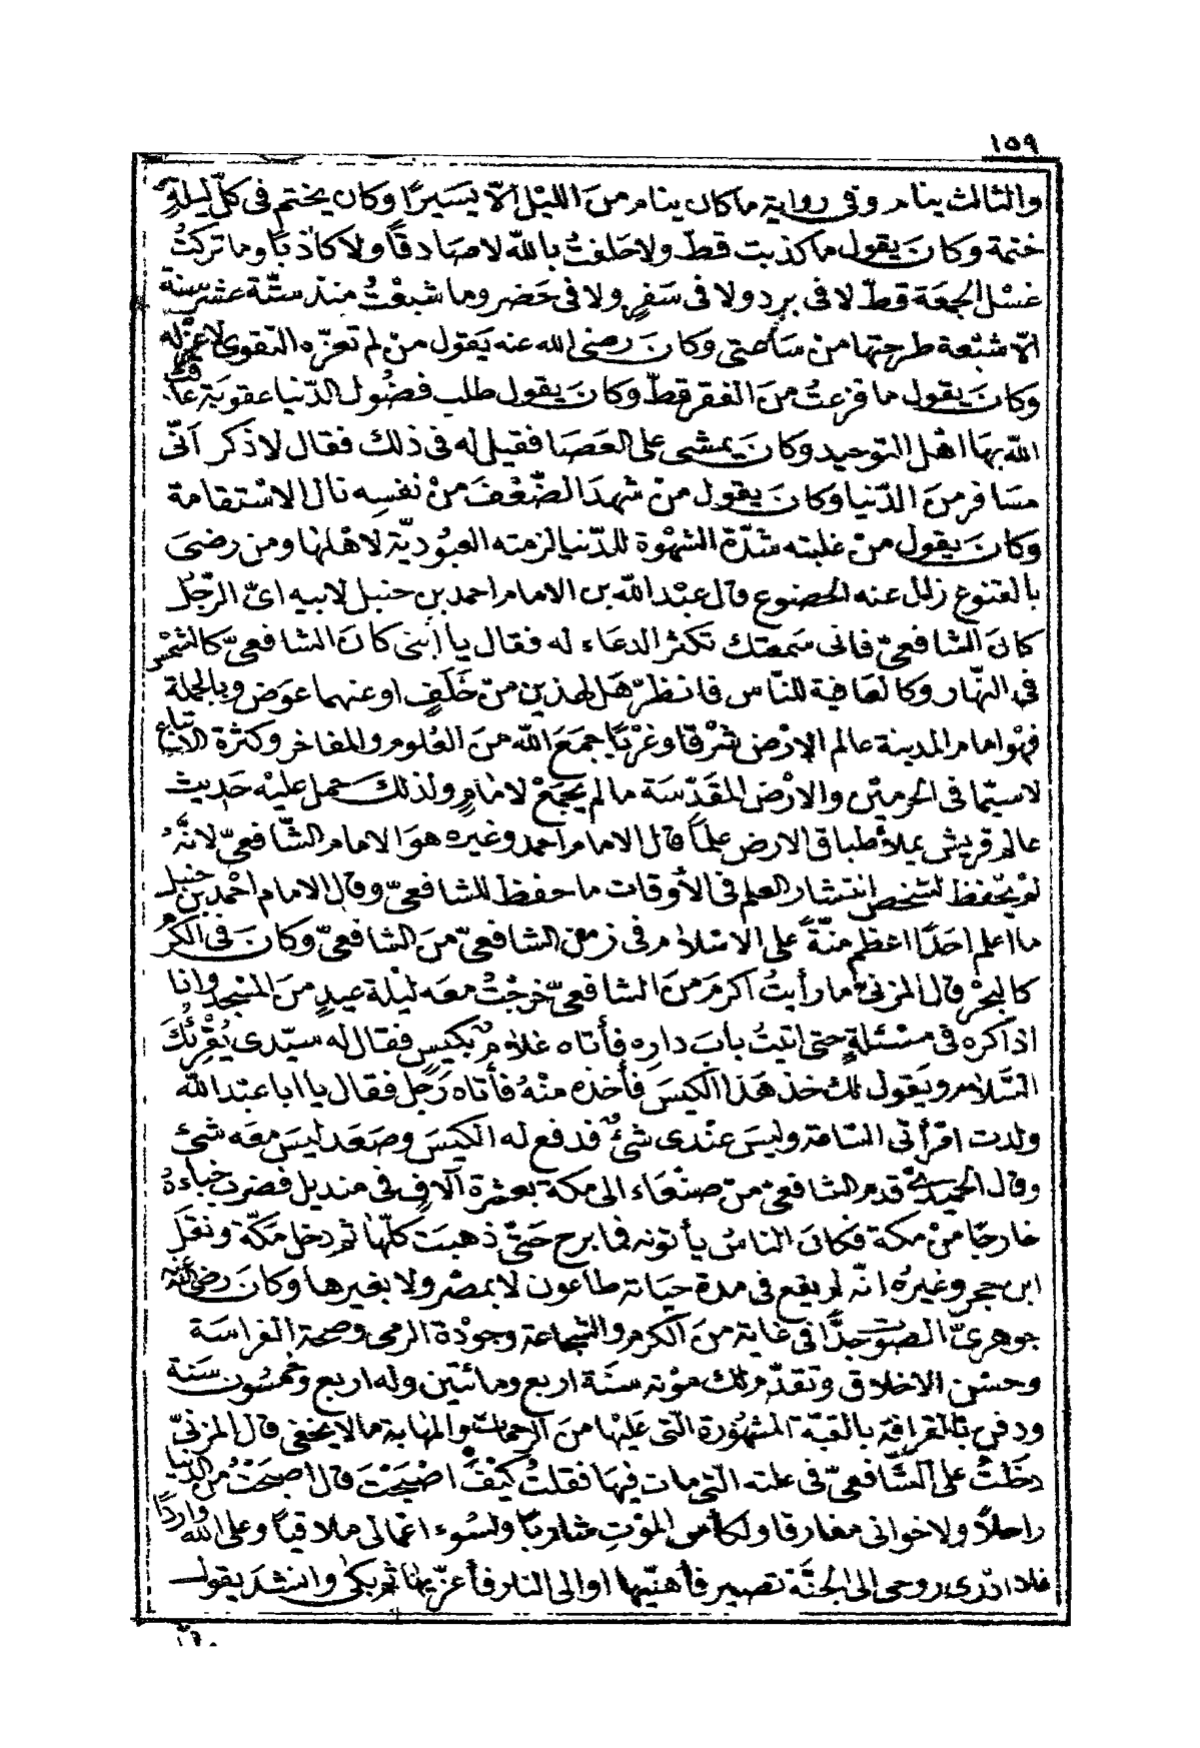 ١٥٩
والثالث ينام وفى رواية ما كان ينام منَ الليْل الّا يسَيرًا وكان يختم فى كلّ ليلةٍ
ختمة وكانَ يقول ما كذبت قطّ ولا حَلفتُ بالله لا صَادقاً ولا كاذبًا وما تركتُ
غسْل الجمعَة قطّ لا فى بردٍ ولا فى سَفرٍ ولا فى حَضر وما شبعْتُ منذ ستّة عشر سنة
الّا شبْعة طرحتها من سَاعتى وكانَ رضى الله عنه يَقول منْ لم تعزّه التقوى لا عزّ له
وكانَ يقول ما فزعتُ منَ الفقر قطّ وكانَ يقول طلب فضُول الدّنيا عقوبَة عاقب
الله بهَا اهْل التوحيد وكانَ يمشى على العَصَا فقيل له فى ذلك فقال لاذكر انّى
مسَافر منَ الدّنيا وكانَ يقول منْ شهدَ الضّعْفَ منْ نفسِه نال الاسْتقامة
وكانَ يقول منْ غلبته شدّة الشهْوة للدّنيا لزمته العبُوديّة لاهْلهَا ومن رضىَ
بالقنوع زال عنه الخضوع قال عبْد الله بن الامام احمد بن حنبل لابيه اىّ الرّجُل
كانَ الشافعىّ فانى سَمعتك تكثر الدعَاء له فقال يا ابنى كانَ الشافعىّ كالشمْس
فى النهّار وكالعَافية للنّاس فانظرْ هَل لهذين منْ خَلَفٍ او عنهما عوَض وبالجملة
فهْو امام المدينة عالم الارْض شرْقا وغرْبًا جمَعَ الله منَ العُلوم والمفاخر وكثرة الاتباع
لاسيّما فى الحرميْن والارْض المقَدّسَة ما لم يجمَعْ لامامٍ ولذلك حمل عليْه حَديث
عالم قريش يملأ طباق الارض علماً قال الامام احمد وغيره هوَ الامام الشّافعىّ لانّهُ
لم يحْفظ لشخص انتشار العلم فى الأوقات ما حفظ للشافعىّ وقال الامام احْمد بن حنبل
ما اعلم احَدًا اعْظم منّةً على الاسْلام فى زمن الشافعىّ منَ الشافعىّ وكانَ فى الكرَم
كالبحْر قال المزنىّ ما رأيتُ اكرمَ منَ الشافعىّ خرَجْتُ معَه ليْلة عيدٍ منَ المسْجد وانا
اذاكره فى مسْئلةٍ حتى اتيتُ بابَ داره فأتاه غلامٌ بكيسٍ فقال له سيّدى يُقْرئكَ
السَّلام ويَقول لك خذ هَذا الكيسَ فأخذه منْهُ فأتاه رَجل فقال يا ابا عبد الله
ولدت امْرأتى السّاعة وليسَ عنْدى شئٌ فدفع له الكيسَ وصَعَد ليسَ معَه شئ
وقال الحميدىّ قدم الشافعىّ منْ صنْعَاء الى مكة بعشرة آلافٍ فى منديل فضرب خباءهُ
خارجًا منْ مكة فكانَ الناسُ يأتونه فما برح حَتىّ ذهبتْ كلّها ثم دخل مَكّة ونقَل
ابن حجر وغيرُه انّه لم يقع فى مدة حيَاته طاعون لا بمصْر ولا بغيرها وكانَ رضى الله عنه
جوهرىّ الصوت جدًّا فى غاية منَ الكرم والشجاعة وجوْدة الرمى وصحة الفراسَة
وحسْن الاخلاق وتقدّم لك موْته سَنَة اربع ومائتيْن وله اربع وخمسُون سَنَة
ودفنَ بالقرافة بالقبّة المشْهُورة الّتى عَليْها منَ الرحمات والمهابة ما لا يخفى قال المزنىّ
دخَلتُ على الشّافعىّ فى علته الّتى مات فيهَا فقلتُ كيْفَ اصْبَحْتَ قال اصبَحْتُ من الدنيا
راحلاً ولاخوانى مفارقا ولكأس الموْتِ شاربًا ولسُوء اعْمالى ملاقياً وعلى الله واردًا
فلا ادْرى روحى الى الجنَّة تصير فأهنّيها او الى النار فأعزّيهَا ثم بكى وانشد يقول
١٦٠